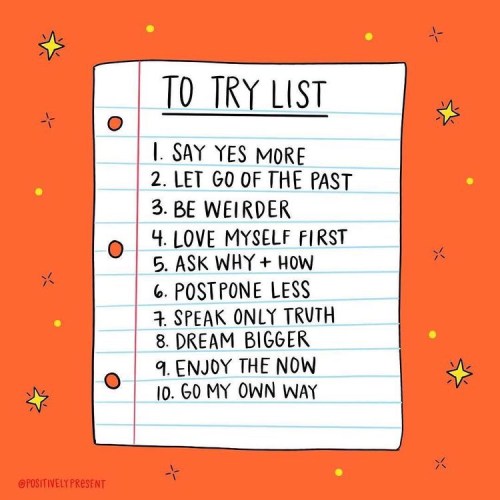 TO TRY LIST
1. SAY YES MORE
2. LET GO OF THE PAST
3. BE WEIRDER
4. LOVE MYSELF FIRST
5. ASK WHY + HOW
6. POSTPONE LESS
7. SPEAK ONLY TRUTH
8. DREAM BIGGER
9. ENJOY THE NOW
10. GO MY OWN WAY
@POSITIVELYPRESENT